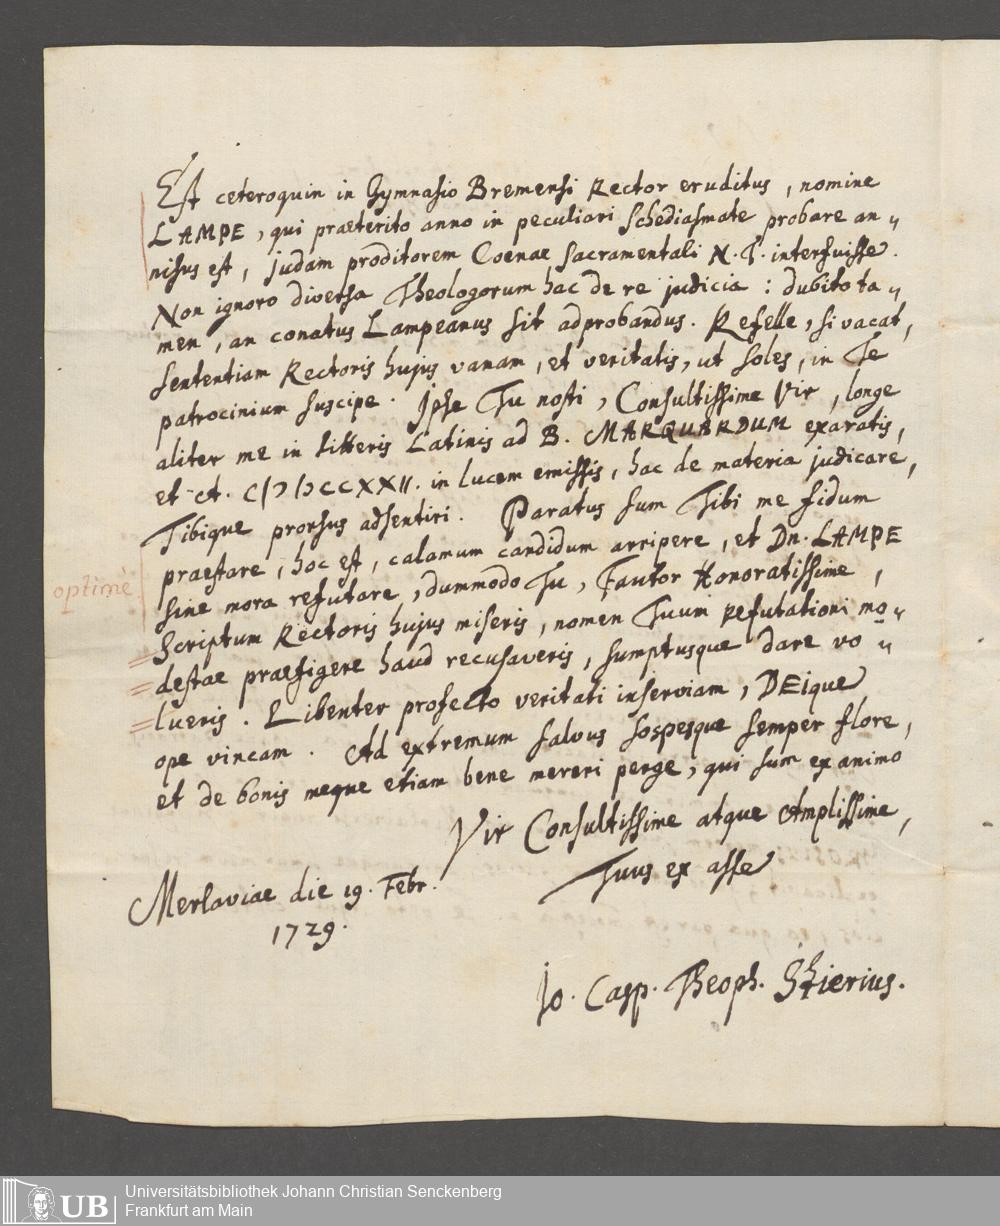 Est ceteroquin in Gymnasio Bremensi Rector eruditus, nomine
LAMPE, qui praeterito anno in peculiari schediasmate probare an„
nisus est, Judam proditorem Coenae sacramentali N. T. interfuisse.
Non ignoro diversa Theologorum hac de re judicia: dubito ta„
men, an conatus Lampeanus sit adprobandus. Refelle, si vacat,
sententiam Rectoris hujus vanam, et veritatis, ut soles, in Te
patrocinium suscipe. Ipse Tu nosti, Consultissime Vir, longe
aliter me in litteris Latinis ad B. MARQUARDUM exaratis,
et A. CIƆIƆCCXXII. in lucem emissis, hac de materia judicare,
Tibique prorsus adsentiri. Paratus sum Tibi me fidum
praestare, hoc est, calamum candidum arripere, et Dn. LAMPE
optimè.
sine mora refutare, dummodo Tu, Fautor Honoratissime,
Scriptum Rectoris hujus miseris, nomen Tuum refutationi mo„
destae praefigere haud recusaveris, sumptusque dare vo„
lueris. Libenter profecto veritati inserviam, DEIque
ope vincam. Ad extremum salvus sospesque semper flore,
et de bonis meque etiam bene mereri perge, qui sum ex animo
Vir Consultissime atque Amplissime,
Tuus ex asse
Merlaviae die 19. Febr.
1729.
Io. Casp. Theoph. Stzierius.
UB
Universitätsbibliothek Johann Christian Senckenberg
Frankfurt am Main